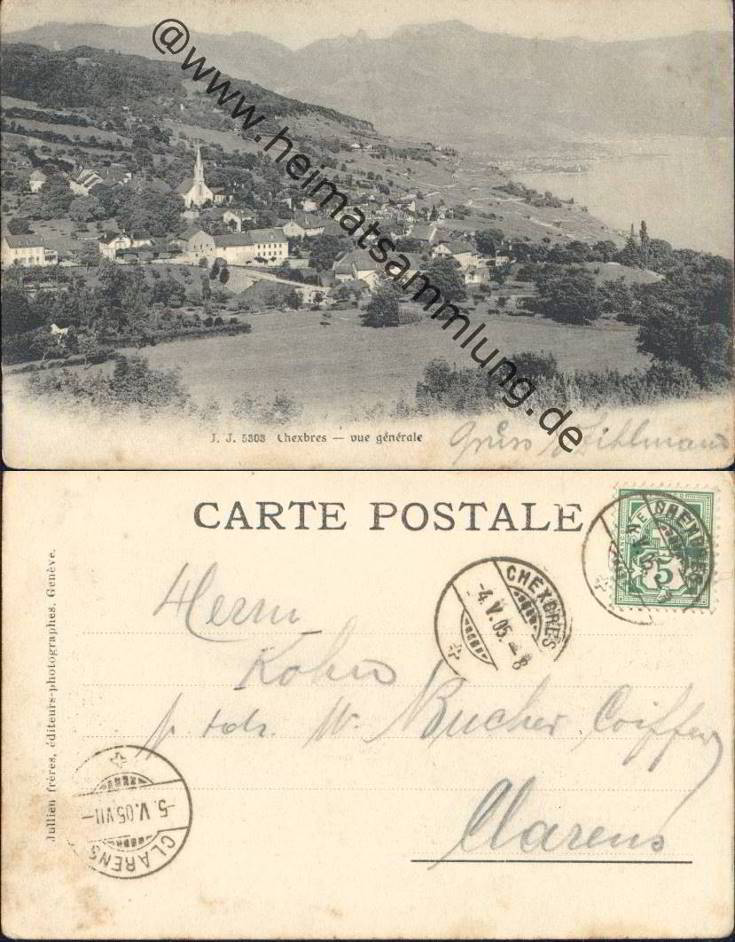 @www.heimatsammlung.de
J. J. 5303 Chexbres — vue générale
Gruss
CARTE POSTALE
CHEXBRES
-4.V.05.-8
CHEXBRES
5
Herrn
Kohn
W. Bucher Coiffeur
Clarens
Jullien frères, éditeurs-photographes, Genève.
-5.V.05 VII-
CLARENS